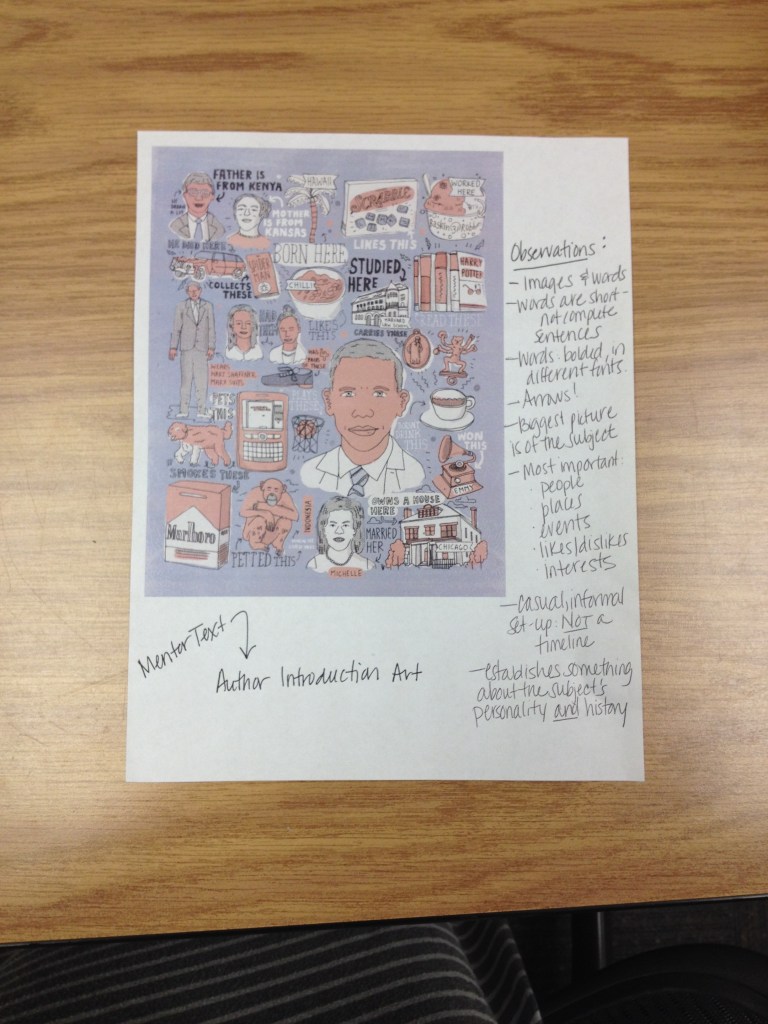 FATHER IS
FROM KENYA
MOTHER
IS FROM
KANSAS
HAWAII
SCRABBLE
LIKES THIS
WORKED
HERE
BORN HERE
COLLECTS
THESE
CHILLI
LIKES
THIS
STUDIED
HERE
HARRY
POTTER
CARRIES THESE
WON
THIS
EMMY
SMOKES THESE
Marlboro
PETTED THIS
INDONESIA
MICHELLE
MARRIED
HER
OWNS A HOUSE
HERE
CHICAGO
Observations:
- Images & words
- Words are short -
not complete
sentences
- Words: bolded, in
different fonts.
- Arrows!
- Biggest picture
is of the subject
- Most important:
· people
· places
· events
· likes/dislikes
· interests
- casual, informal
set-up: Not a
timeline
- establishes something
about the subject's
personality and history
Mentor Text
Author Introduction Art